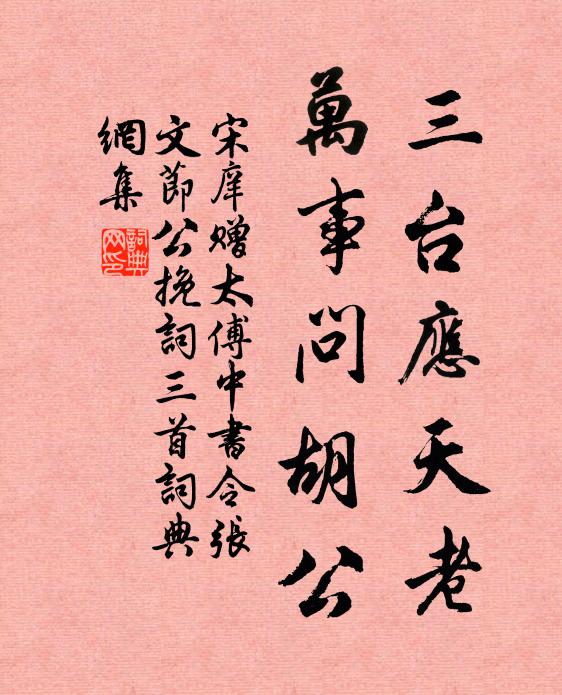 三台應天老
萬事問胡公
宋庠贈太傅中書令張
文節公挽詞三首詞典
網集
詞典
网印